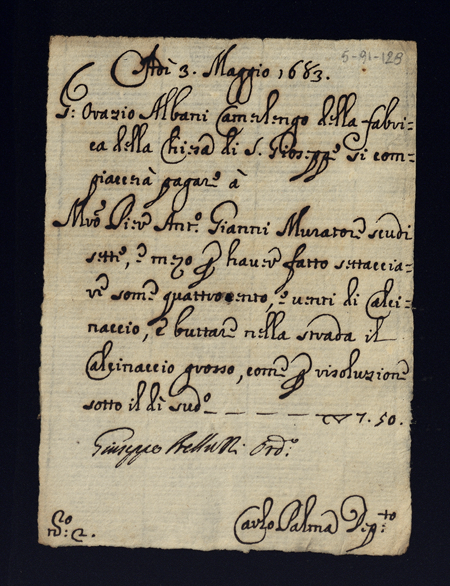 5-91-128
Adì 3. Maggio 1683.
S: Orazio Albani Camerlengo della fabri=
ca della Chiesa di S. Gioseppe si com=
piacerà pagare à
Mro Pier Anto Gianni Muratore scudi
sette, e mezo p haver fatto settaccia=
re some quattrocento, e venti di Calci=
naccio, e buttare nella strada il
Calcinaccio grosso, come p risoluzione
sotto il dì sudo — — — — 7.50.
Giuseppe Ordo
No: 2. Carlo Palma Depto